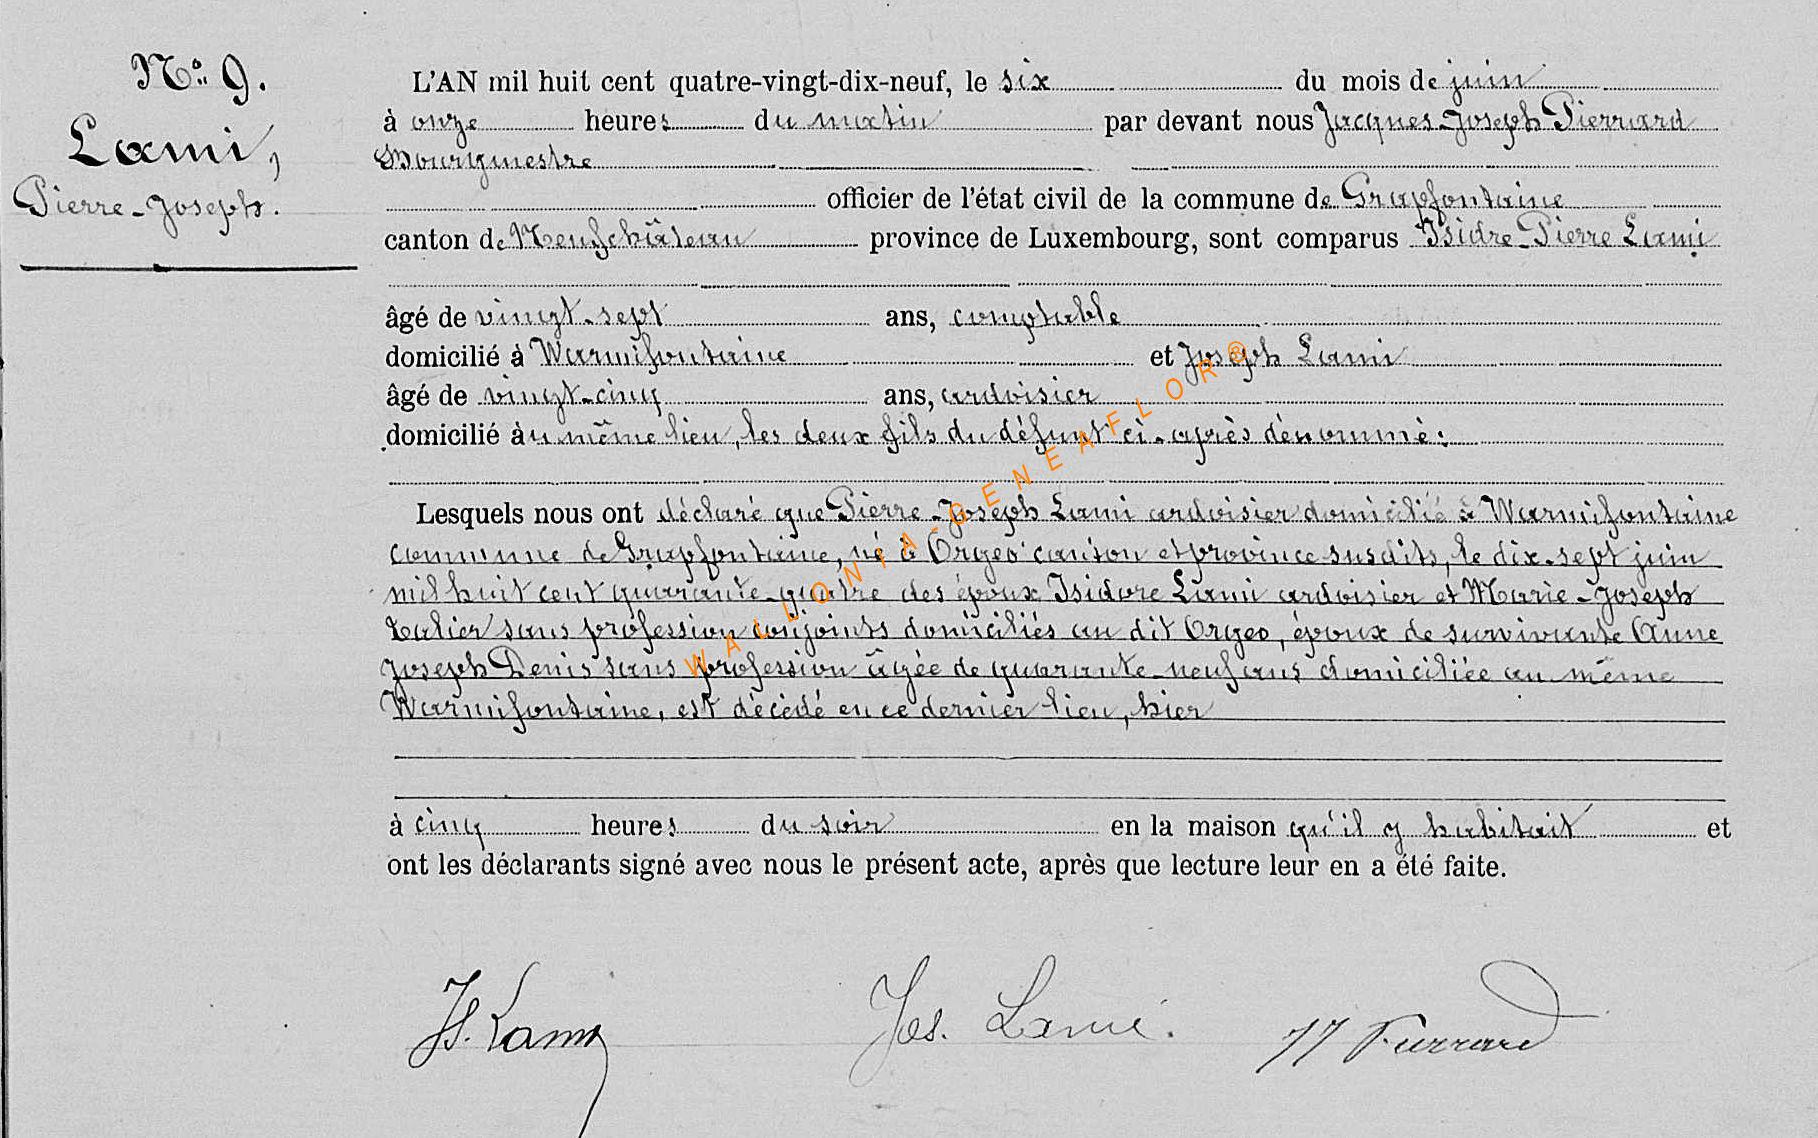 N° 9.
Lami,
Pierre-Joseph.
L'AN mil huit cent quatre-vingt-dix-neuf, le six du mois de juin
à onze heures du matin par devant nous Jacques-Joseph Pierrard
Bourgmestre
officier de l'état civil de la commune de Grapfontaine
canton de Neufchâteau province de Luxembourg, sont comparus Isidre-Pierre Lami
âgé de vingt-sept ans, comptable
domicilié à Warmifontaine et Joseph Lami
âgé de vingt-cinq ans, ardoisier
domicilié au même lieu, les deux fils du défunt ci-après dénommé:
Lesquels nous ont déclaré que Pierre-Joseph Lami ardoisier domicilié à Warmifontaine
commune de Grapfontaine, né à Orgeo canton et province susdits, le dix-sept juin
mil huit cent quarante-quatre des époux Isidore Lami ardoisier et Marie-Joseph
sans profession conjoints domiciliés au dit Orgeo, époux de survivante Anne
Joseph Denis sans profession âgée de quarante-neuf ans domiciliée au même
Warmifontaine, est décédé en ce dernier lieu, hier
à cinq heures du soir en la maison qu'il y habitait et
ont les déclarants signé avec nous le présent acte, après que lecture leur en a été faite.
Is. Lami Jos. Lami. JJ Pierrard
WALLONIA-GENEAFLOR®